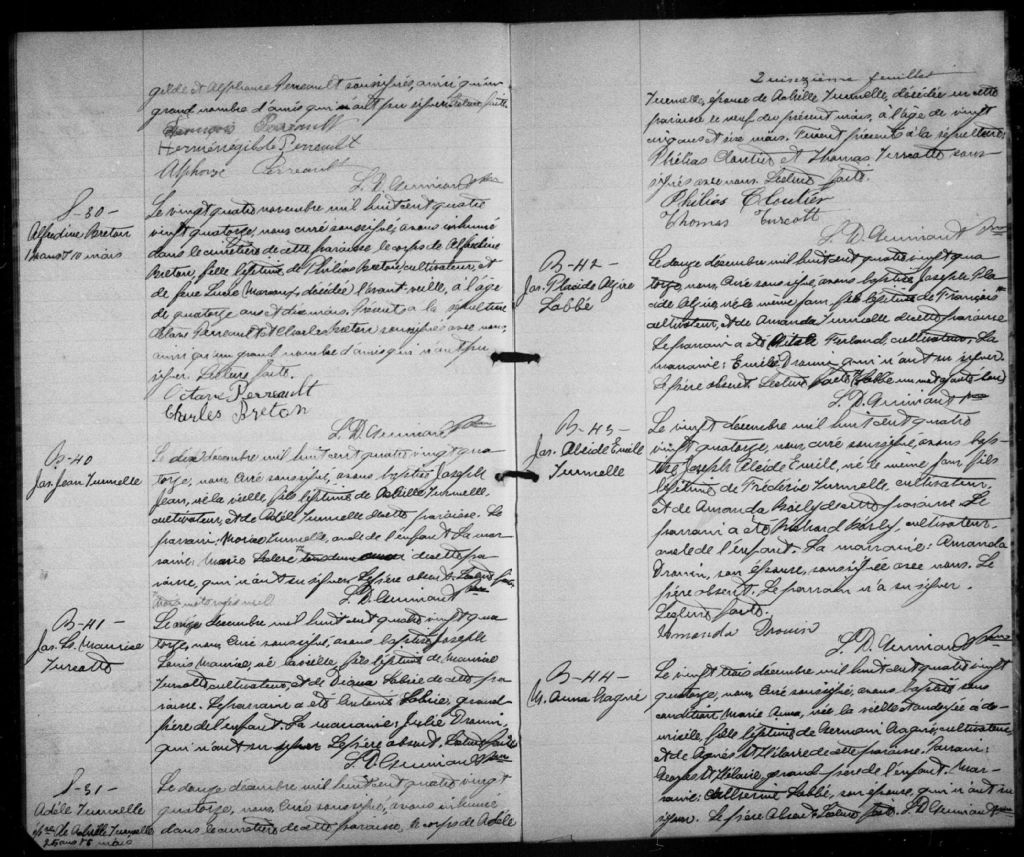 gilde et Alphonse Perreault soussignés, ainsi qu'un
grand nombre d'amis qui n'ont pu signer. Lecture faite.
François Perreault
Herménégilde Perreault
Alphonse Perreault
L. D. Guimont Ptre
S-30-
Alfredine Breton
14 ans et 10 mois
Le vingt quatre novembre mil huit cent quatre
vingt quatorze, nous curé soussigné, avons inhumé
dans le cimetière de cette paroisse, le corps de Alfredine
Breton, fille légitime de Philias Breton, cultivateur, et
de feue Lucie Marcoux, décédée l'avant veille, à l'âge
de quatorze ans et dix mois. Présents à la sépulture
Octave Perreault et Charles Breton soussignés avec nous,
ainsi qu'un grand nombre d'amis qui n'ont pu
signer. Lecture faite.
Octave Perreault
Charles Breton
L. D. Guimont Ptre
B-40
Jos. Jean Turmelle
Le dix decembre mil huit cent quatre vingt qua
torze, nous curé soussigné, avons baptisé Joseph
Jean, né la veille, fils légitime de Achille Turmelle,
cultivateur, et de Adèle Turmelle de cette paroisse. Le
parrain: Moise Turmelle, oncle de l'enfant. La mar
raine: Marie Leclerc de cette pa
roisse, qui n'ont su signer. Le père absent. Lecture faite.
trois mots rayés nuls
L. D. Guimont Ptre
B-41-
Jos. Ls. Maurice
Turcotte
Le onze decembre mil huit cent quatre vingt qua
torze, nous curé soussigné, avons baptisé Joseph
Louis Maurice, né la veille, fils légitime de Maurice
Turcotte cultivateur, et de Diana Labbé de cette pa
roisse. Le parrain a été Antoine Labbé, grand-
père de l'enfant. La marraine: Julie Drouin,
qui n'ont su signer. Le père absent. Lecture faite
L. D. Guimont Ptre
S-31-
Adèle Turmelle
épse de Achille Turmelle
25 ans et 6 mois
Le douze décembre mil huit cent quatre vingt
quatorze, nous curé soussigné, avons inhumé
dans le cimetière de cette paroisse, le corps de Adèle
Quinzième feuillet
Turmelle, épouse de Achille Turmelle, décédée en cette
paroisse le neuf du présent mois, à l'âge de vingt
cinq ans et six mois. Furent présents à la sépulture:
Philias Cloutier et Thomas Turcotte sous-
signés avec nous. Lecture faite.
Philias Cloutier
Thomas Turcott
L. D. Guimont Ptre
B-42-
Jos. Placide Alzire
Labbé
Le douze décembre mil huit cent quatre vingt qua
torze, nous, Curé soussigné, avons baptisé Joseph Pla
cide Alzire, né le même jour, fils légitime de François
cultivateur, et de Amanda Turmelle de cette paroisse
Le parrain a été Vital Ferland, cultivateur. La
marraine: Emélie Drouin, qui n'ont su signer.
Le père absent. Lecture faite (Labbé un mot ajouté bon)
L. D. Guimont Ptre
B-43-
Jos. Alcide Emile
Turmelle
Le vingt décembre mil huit cent quatre
vingt quatorze, nous, curé soussigné, avons bap-
tisé Joseph Alcide Emile, né le même jour, fils
légitime de Frédéric Turmelle, cultivateur,
et de Amanda Bailly de cette paroisse. Le
parrain a été Richard Bailly, cultivateur,
oncle de l'enfant. La marraine: Amanda
Drouin, son épouse, soussignée avec nous. Le
père absent. Le parrain n'a su signer.
Lecture faite.
Amanda Drouin
L. D. Guimont Ptre
B-44-
M. Anna Gagné
Le vingt trois décembre mil huit cent quatre vingt
quatorze, nous, Curé soussigné, avons baptisé sous
condition Marie Anna, née la veille et ondoyée à do-
micile, fille légitime de Germain Gagné, cultivateur,
et de Agnès St Hilaire de cette paroisse. Parrain:
Georges St Hilaire, grand-père de l'enfant. Mar-
raine: Catherine Labbé, son épouse, qui n'ont su
signer. Le père Absent. Lecture faite. L. D. Guimont Ptre